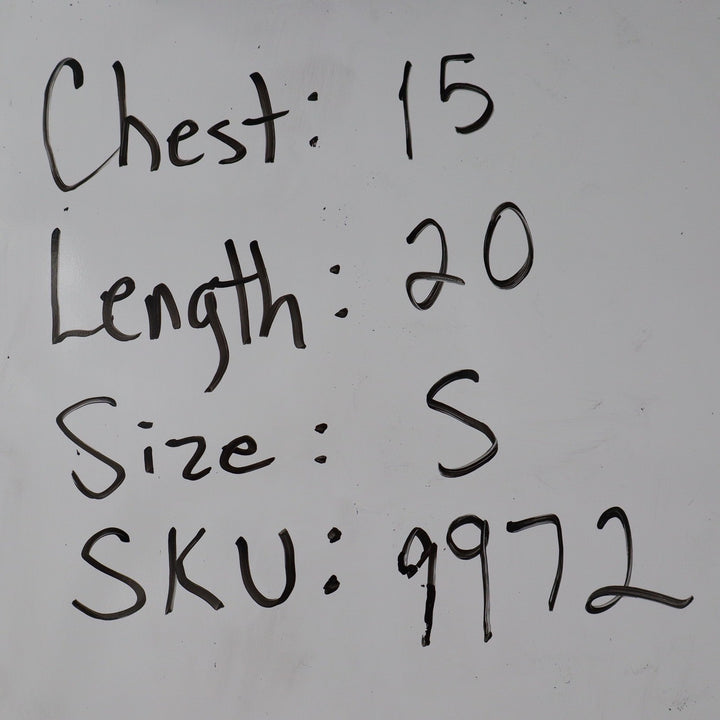 Chest: 15
Length: 20
Size: S
SKU: 9972